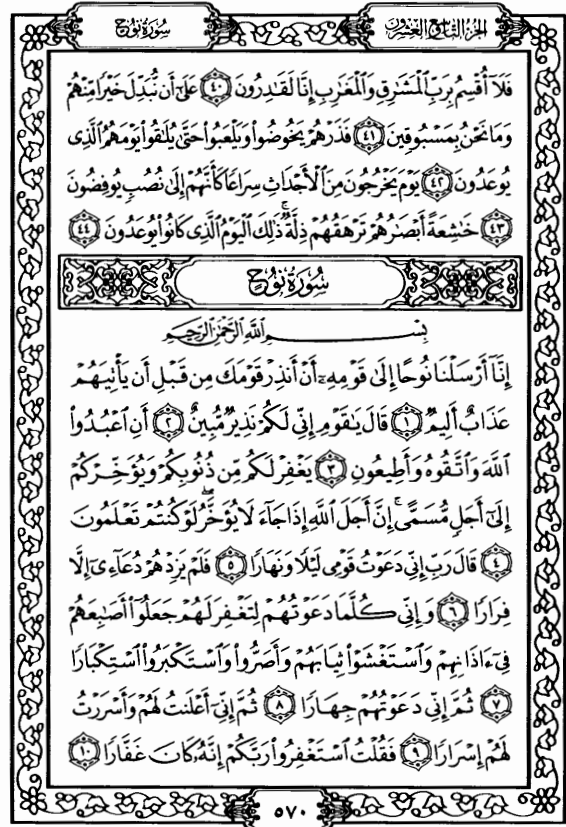 الجزء التاسع والعشرون
سورة نوح
فَلَآ أُقْسِمُ بِرَبِّ ٱلْمَشَٰرِقِ وَٱلْمَغَٰرِبِ إِنَّا لَقَٰدِرُونَ ٤٠ عَلَىٰٓ أَن نُّبَدِّلَ خَيْرًا مِّنْهُمْ
وَمَا نَحْنُ بِمَسْبُوقِينَ ٤١ فَذَرْهُمْ يَخُوضُوا۟ وَيَلْعَبُوا۟ حَتَّىٰ يُلَٰقُوا۟ يَوْمَهُمُ ٱلَّذِى
يُوعَدُونَ ٤٢ يَوْمَ يَخْرُجُونَ مِنَ ٱلْأَجْدَاثِ سِرَاعًا كَأَنَّهُمْ إِلَىٰ نُصُبٍ يُوفِضُونَ
٤٣ خَٰشِعَةً أَبْصَٰرُهُمْ تَرْهَقُهُمْ ذِلَّةٌ ۚ ذَٰلِكَ ٱلْيَوْمُ ٱلَّذِى كَانُوا۟ يُوعَدُونَ ٤٤
سُورَةُ نُوحٍ
بِسْمِ ٱللَّهِ ٱلرَّحْمَٰنِ ٱلرَّحِيمِ
إِنَّآ أَرْسَلْنَا نُوحًا إِلَىٰ قَوْمِهِۦٓ أَنْ أَنذِرْ قَوْمَكَ مِن قَبْلِ أَن يَأْتِيَهُمْ
عَذَابٌ أَلِيمٌ ١ قَالَ يَٰقَوْمِ إِنِّى لَكُمْ نَذِيرٌ مُّبِينٌ ٢ أَنِ ٱعْبُدُوا۟
ٱللَّهَ وَٱتَّقُوهُ وَأَطِيعُونِ ٣ يَغْفِرْ لَكُم مِّن ذُنُوبِكُمْ وَيُؤَخِّرْكُمْ
إِلَىٰٓ أَجَلٍ مُّسَمًّى ۚ إِنَّ أَجَلَ ٱللَّهِ إِذَا جَآءَ لَا يُؤَخَّرُ ۖ لَوْ كُنتُمْ تَعْلَمُونَ
٤ قَالَ رَبِّ إِنِّى دَعَوْتُ قَوْمِى لَيْلًا وَنَهَارًا ٥ فَلَمْ يَزِدْهُمْ دُعَآءِىٓ إِلَّا
فِرَارًا ٦ وَإِنِّى كُلَّمَا دَعَوْتُهُمْ لِتَغْفِرَ لَهُمْ جَعَلُوٓا۟ أَصَٰبِعَهُمْ
فِىٓ ءَاذَانِهِمْ وَٱسْتَغْشَوْا۟ ثِيَابَهُمْ وَأَصَرُّوا۟ وَٱسْتَكْبَرُوا۟ ٱسْتِكْبَارًا
٧ ثُمَّ إِنِّى دَعَوْتُهُمْ جِهَارًا ٨ ثُمَّ إِنِّىٓ أَعْلَنتُ لَهُمْ وَأَسْرَرْتُ
لَهُمْ إِسْرَارًا ٩ فَقُلْتُ ٱسْتَغْفِرُوا۟ رَبَّكُمْ إِنَّهُۥ كَانَ غَفَّارًا ١٠
٥٧٠